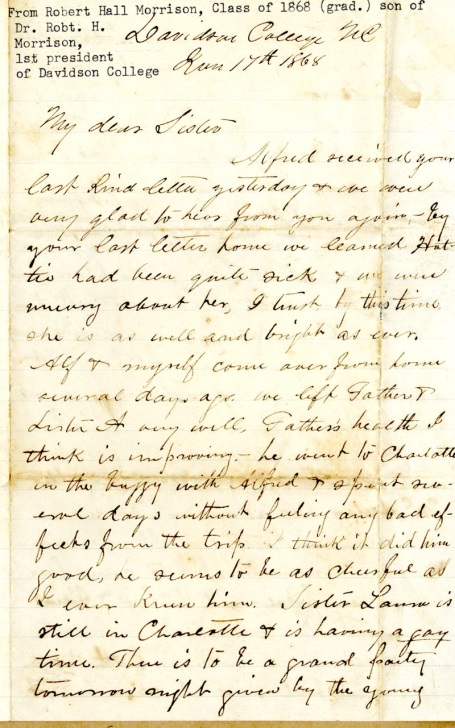 From Robert Hall Morrison, Class of 1868 (grad.) son of
Dr. Robt. H.
Morrison,
1st president
of Davidson College
Davidson College NC
17th 1868
My dear Sister
Alfred received your
last kind letter yesterday & we were
very glad to hear from you again, - By
your last letter home we learned Hat-
tie had been quite sick & we were
uneasy about her, I trust by this time
she is as well and bright as ever.
Alf & myself come over from home
several days ago. we left Father &
Sister A very well. Father's health I
think is improving - he went to Charlotte
in the buggy with Alfred & spent sev-
eral days without feeling any bad ef-
fects from the trip. I think it did him
good, he seems to be as cheerful as
I ever knew him. Sister Laura is
still in Charlotte & is having a gay
time. There is to be a grand party
tomorrow night given by the young